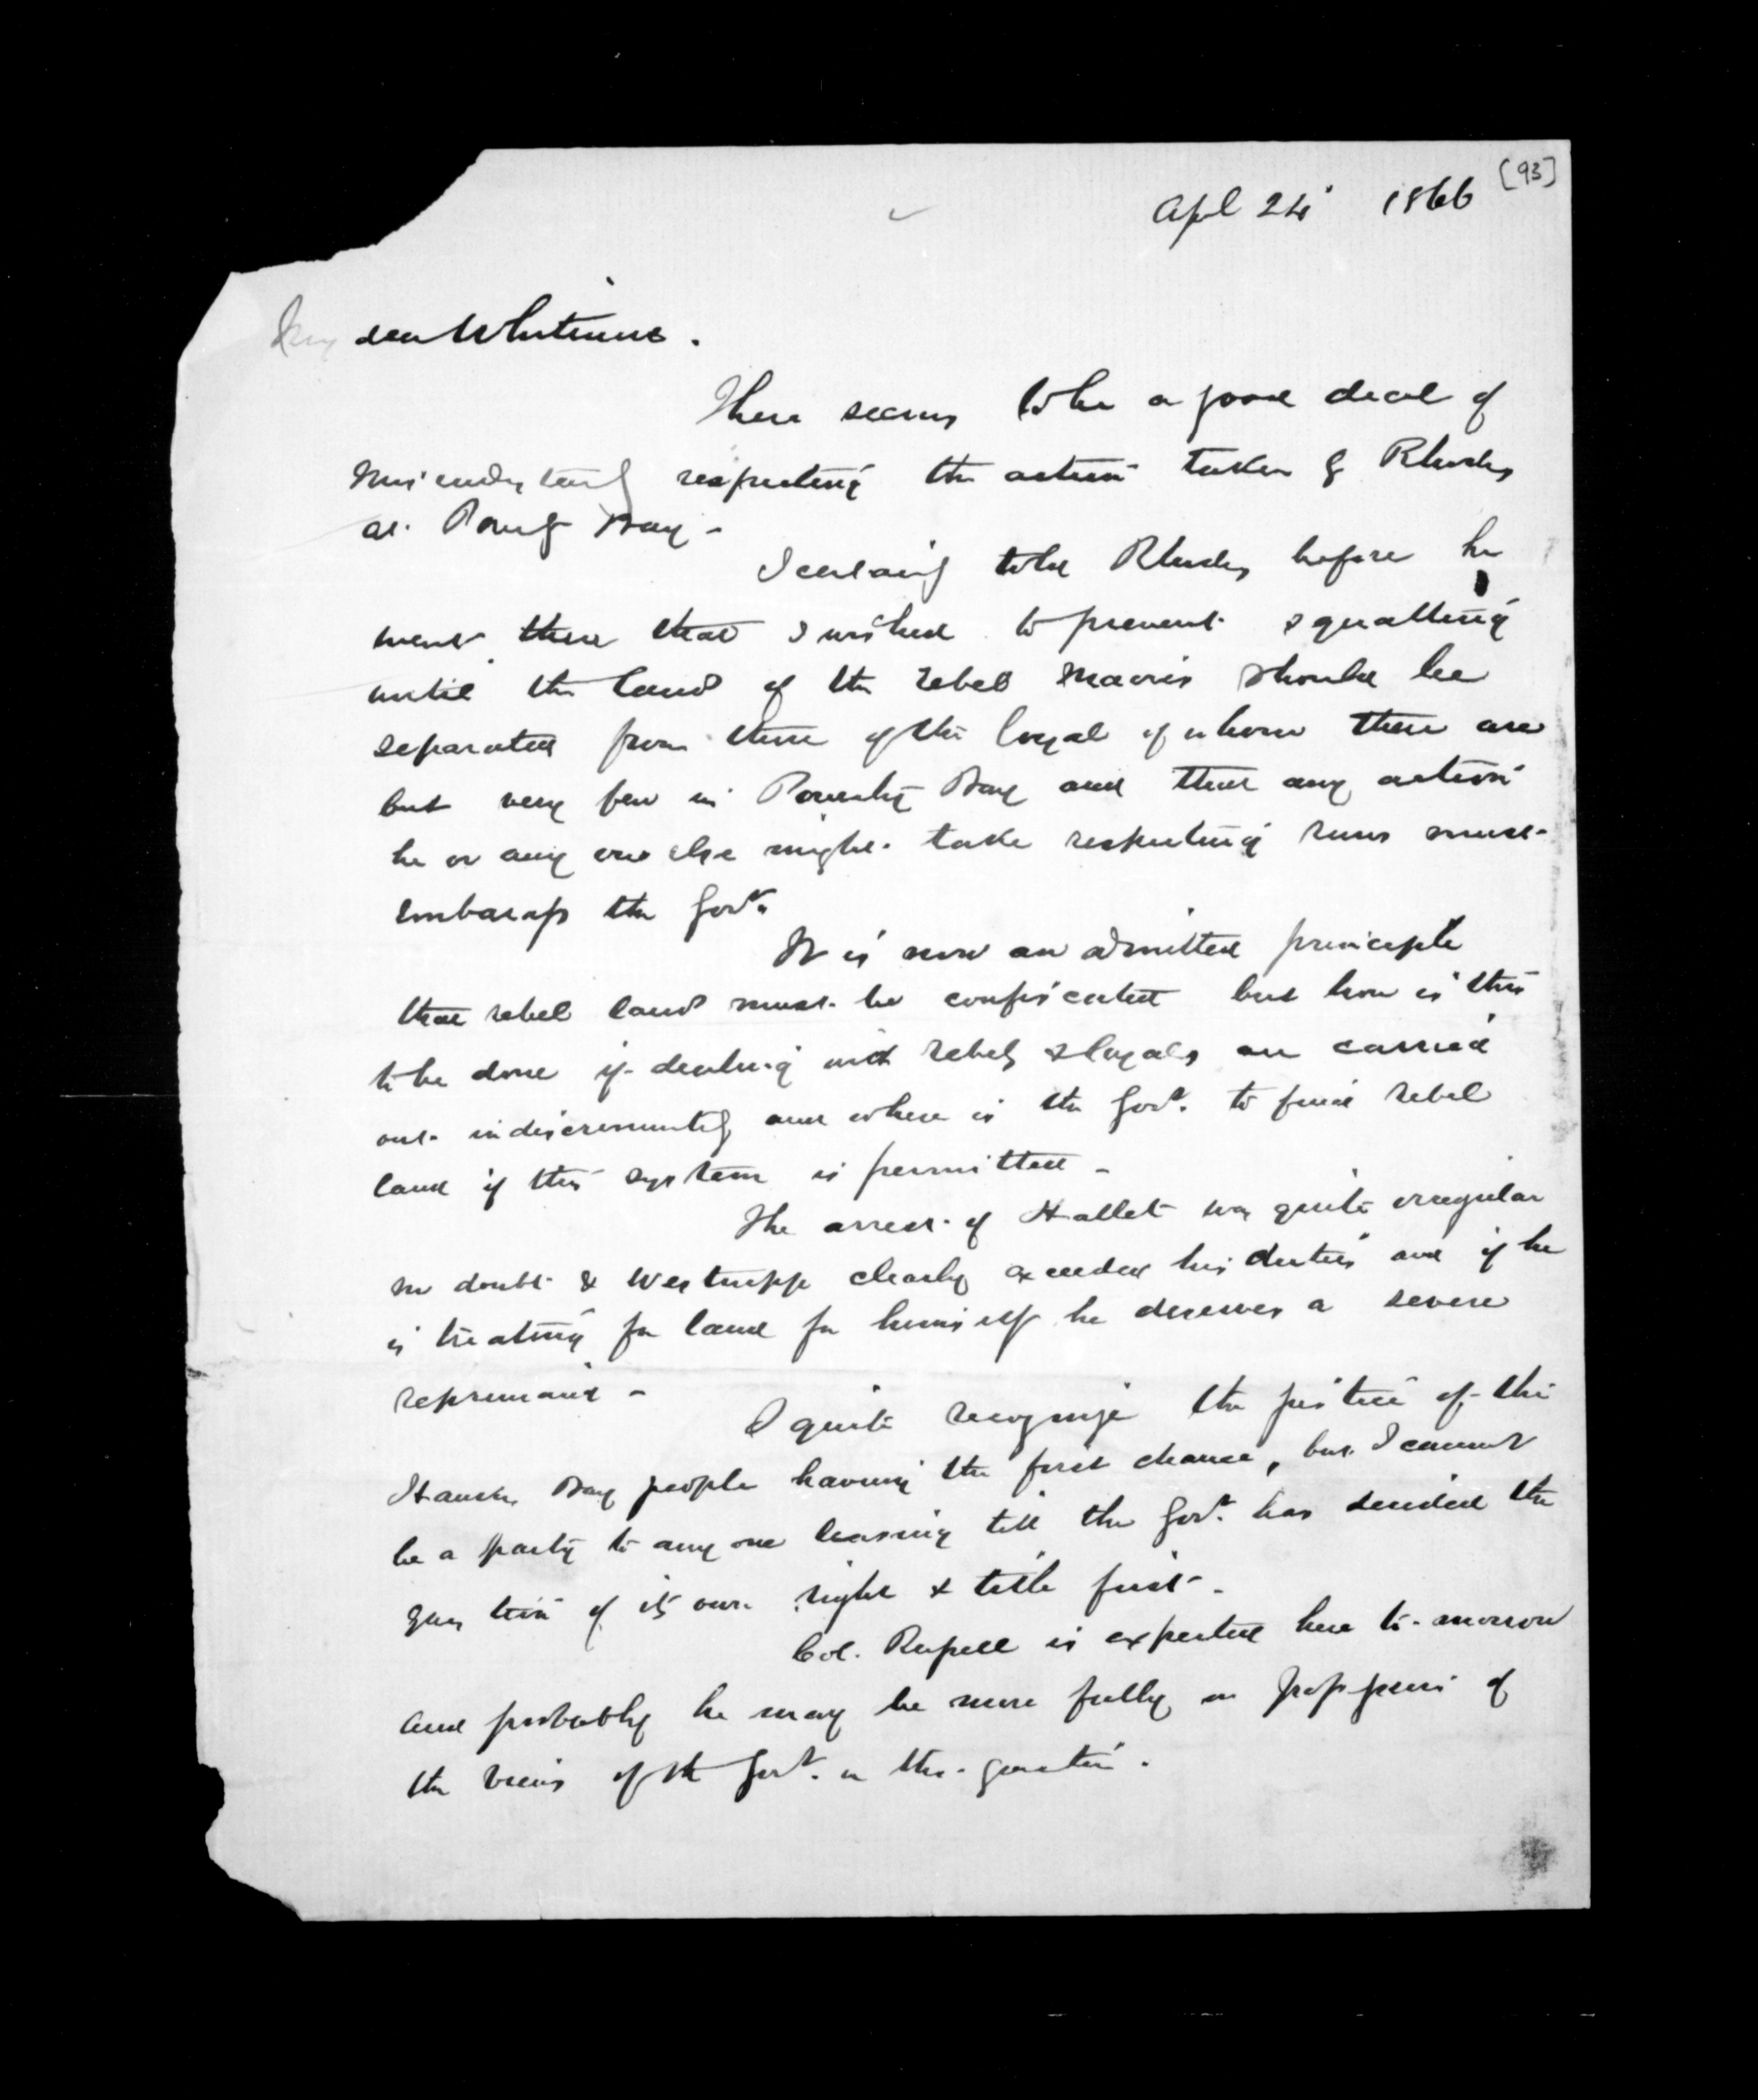 [93]
Apl 24 1866
My dear Whitmore.
There seems to be a good deal of
misunderstanding respecting the action taken by Rhodes
at Poverty Bay -
I certainly told Rhodes before he
went there that I wished to prevent squatting
until the land of the rebel Maoris should be
separated from those of the loyal of whom there are
but very few in Poverty Bay and that any action
he or any one else might take respecting runs must
embarass the Govt.
It is now an admitted principle
that rebel land must be confiscated but how is this
to be done if dealing with rebels & loyals are carried
out indiscriminately and where is the Govt. to find rebel
land if this system is permitted -
The arrest of Hallet was quite irregular
no doubt & Westrupp clearly exceeded his duties and if he
is treating for land for himself he deserves a severe
reprimand -
I quite recognize the justice of the
Hawkes Bay people having the first chance, but I cannot
be a party to any one leasing till the Govt. has decided the
question of its own right & title first -
Col. Russell is expected here to-morrow
and probably he may be more fully in possession of
the views of the Govt. on the question.